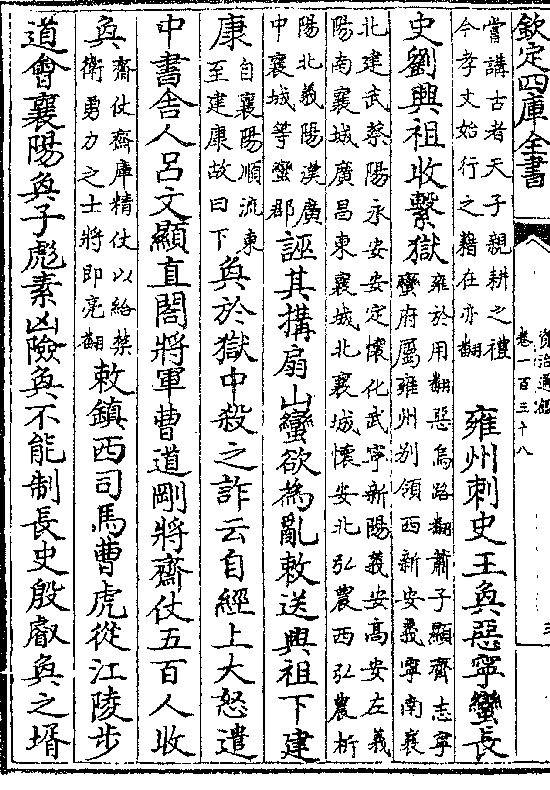 欽定四庫全書
資治通鑑
卷一百三十八
三
嘗講古者天子親耕之禮
今孝文始行之藉在亦翻
雍州刺史王奐惡寧蠻長
史劉興祖收繫獄
雍於用翻惡烏路翻蕭子顯齊志寧
蠻府屬雍州别領西新安義寧南襄
北建武蔡陽永安安定懷化武寧新陽義安高安左義
陽南襄城廣昌東襄城北襄城懷安北弘農西弘農析
陽北義陽漢廣
中襄城等蠻郡
誣其搆扇山蠻欲為亂敕送興祖下建
康
自襄陽順流東
至建康故曰下
奐於獄中殺之詐云自經上大怒遣
中書舍人吕文顯直閤將軍曹道剛將齋仗五百人收
奐
齋仗齋庫精仗以給禁
衛勇力之士將即亮翻
敕鎮西司馬曹虎從江陵步
道會襄陽奐子彪素凶險奐不能制長史殷叡奐之壻